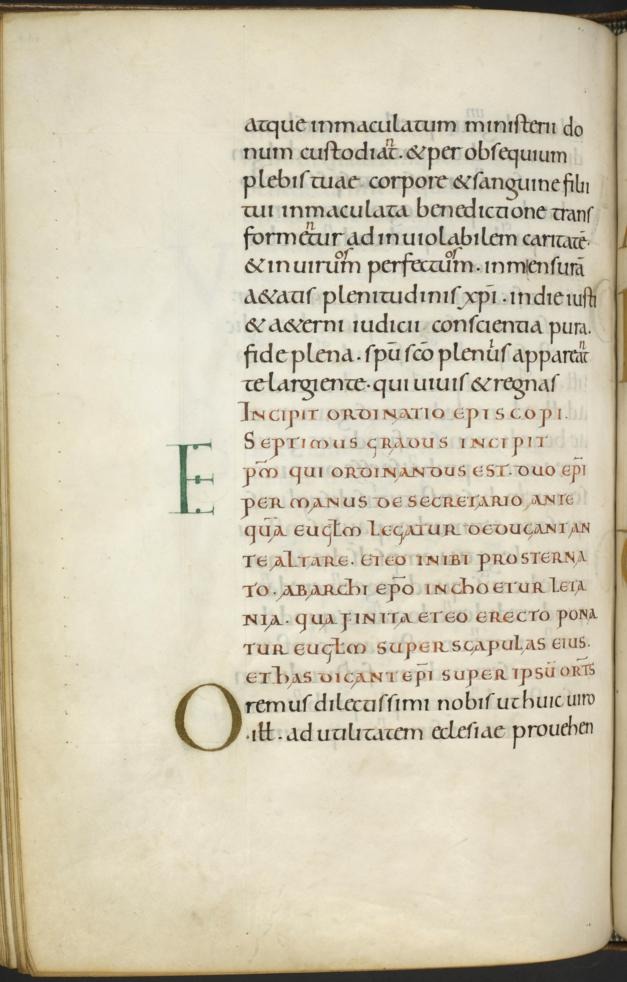 atque inmaculatum ministerii do
num custodiat. &per obsequium
plebis tuae corpore &sanguine filii
tui inmaculata benedictione trans
formetur ad inuiolabilem caritatē.
&inuirum perfectum. inmensurā
a&atis plenitudinis xp̄i. indie iusti
& a&erni iudicii conscientia pura.
fide plena. sp̄u sc̄o plenus appareat
te largiente. qui uiuis &regnas
INCIPIT ORDINATIO EPISCOPI.
SEPTIMUS GRADUS INCIPIT
E
PM̄ QUI ORDINANDUS EST. DUO EP̄I
PER MANUS DE SECRETARIO ANTE
QUĀ EUGL̄M LEGATUR DEDUCANT AN
TE ALTARE. ET EO INIBI PROSTERNA
TO. AB ARCHI EP̄O INCHOETUR LETA
NIA. QUA FINITA ET EO ERECTO PONA
TUR EUGL̄M SUPER SCAPULAS EIUS.
ET HAS DICANT EP̄I SUPER IPSŪ ORT̄S
Oremus dilectissimi nobis ut huic uiro
.ill̄. ad utilitatem eclesiae prouehen